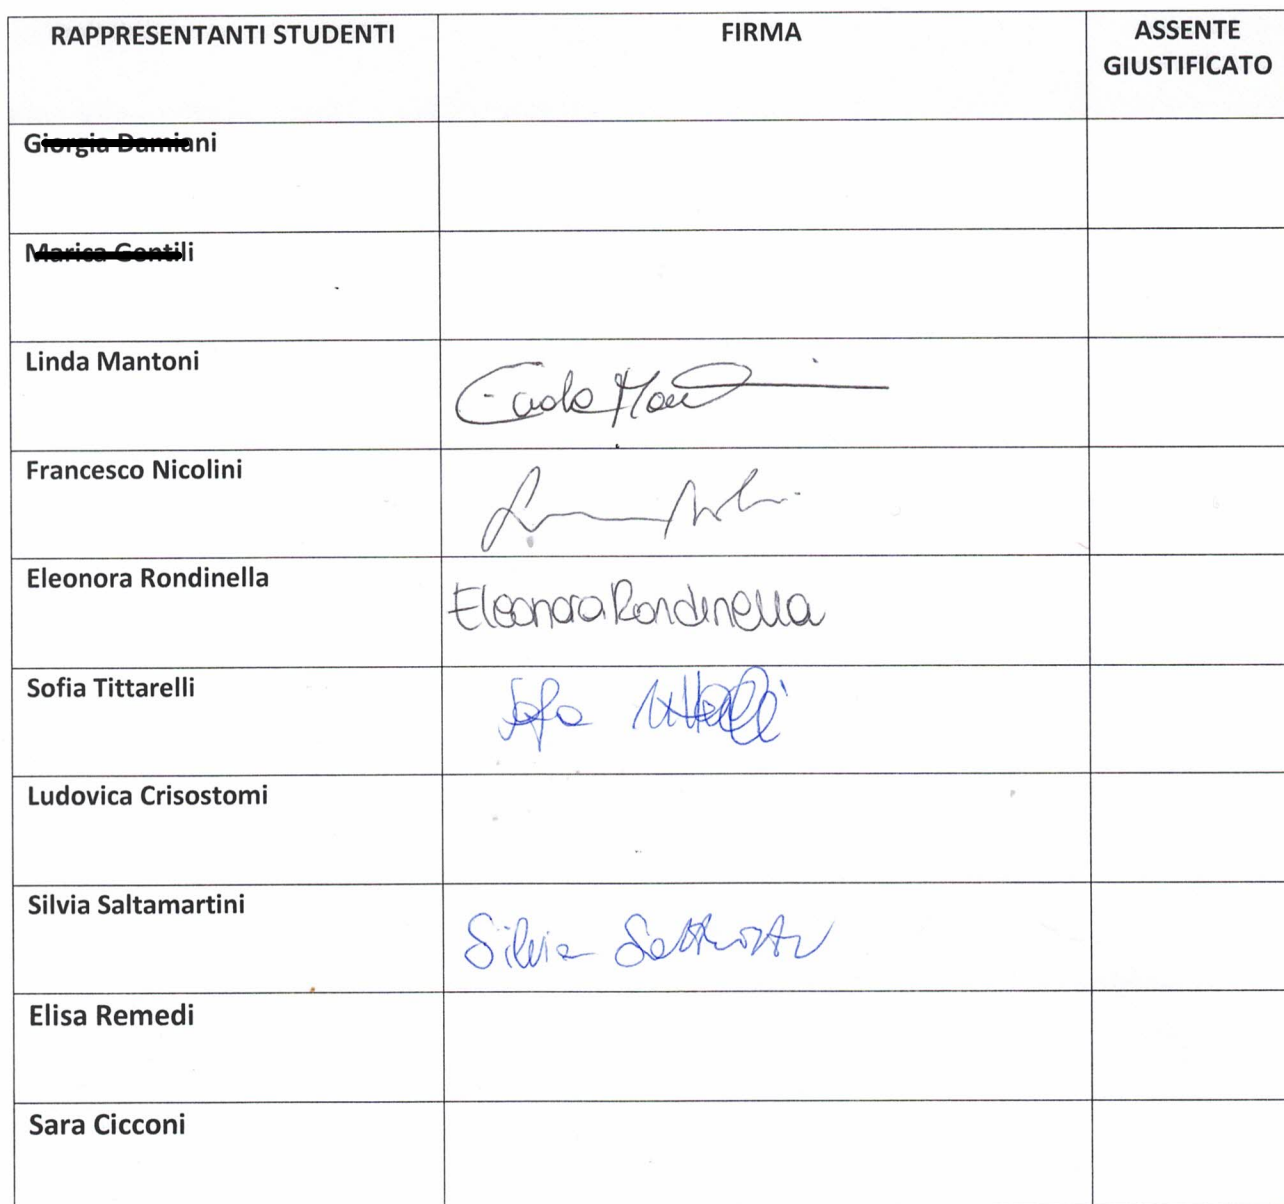 RAPPRESENTANTI STUDENTI FIRMA ASSENTE GIUSTIFICATO
Giorgia Damiani
Marica Gentili
Linda Mantoni
Francesco Nicolini
Eleonora Rondinella Eleonora Rondinella
Sofia Tittarelli Sofia Tittarelli
Ludovica Crisostomi
Silvia Saltamartini Silvia
Elisa Remedi
Sara Cicconi